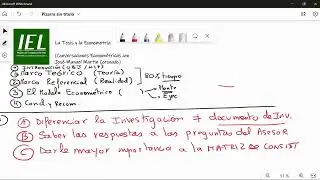 Microsoft Whiteboard
Pizarra sin título
IEL
La Tesis y la Econometría
Conversaciones Econométricas con
José Manuel Martin Coronado
① Introducción (OBJ / HIP)
① Marco Teórico (Teoría)
② Marco Referencial (Realidad)
80% tiempo
③ El Modelo Econométrico
④ Concl y Recom
Ⓐ Diferenciar la Investigación ≠ documento de Inv.
Ⓑ Saber las respuestas a las preguntas del Asesor
Ⓒ Darle mayor importancia a la MATRIZ DE CONSIST